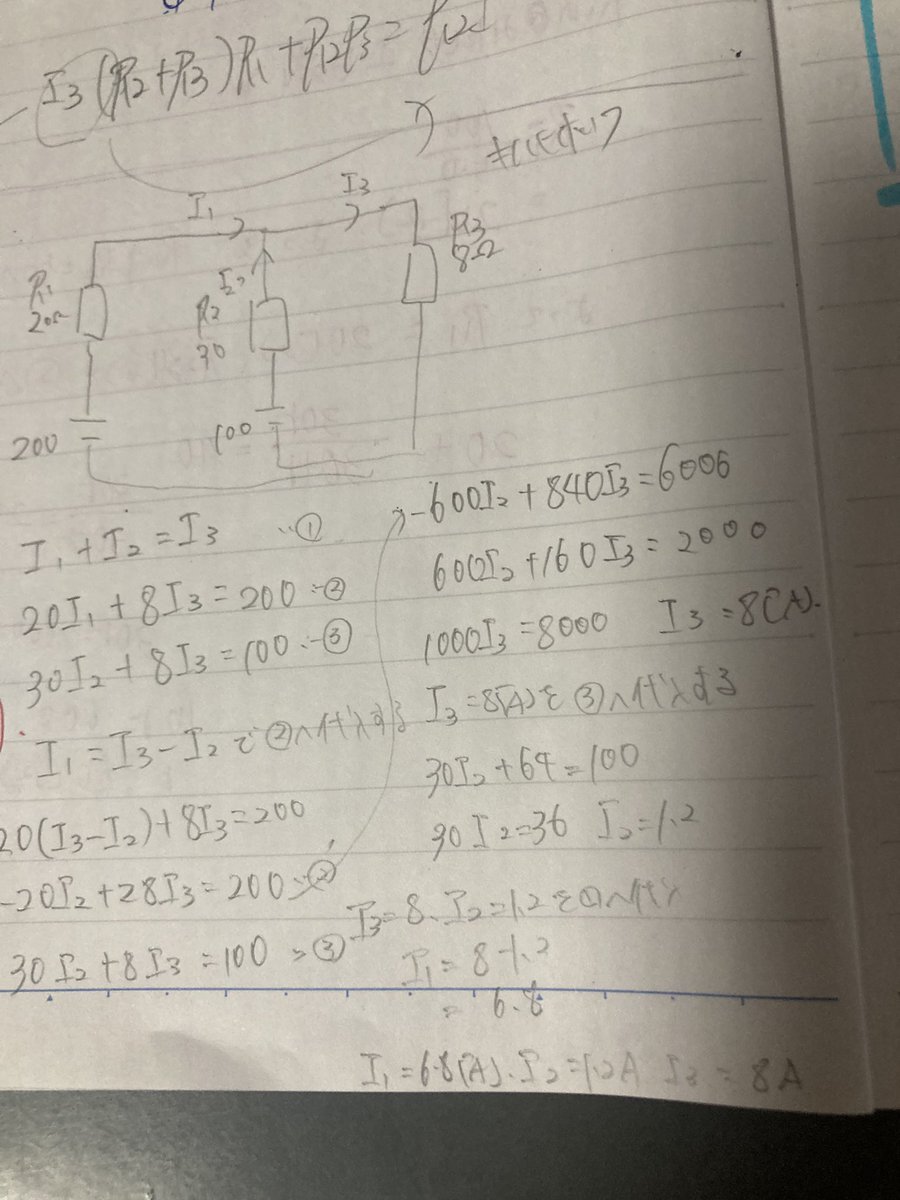 I3(R2+R3)R1+R2R3=
I1
I3
R1
20Ω
I2
R2
30
R3
8Ω
200
100
I1+I2=I3 …①
20I1+8I3=200…②
30I2+8I3=100…③
I1=I3-I2で②へ代入する
20(I3-I2)+8I3=200
-20I2+28I3=200…②
30I2+8I3=100…③
-600I2+840I3=6000
600I2+160I3=2000
1000I3=8000 I3=8(A).
I3=8(A)を③へ代入する
30I2+64=100
30I2=36 I2=1.2
I3=8、I2=1.2を①へ代入
I1=8-1.2
=6.8
I1=6.8(A).I2=1.2A I3=8A